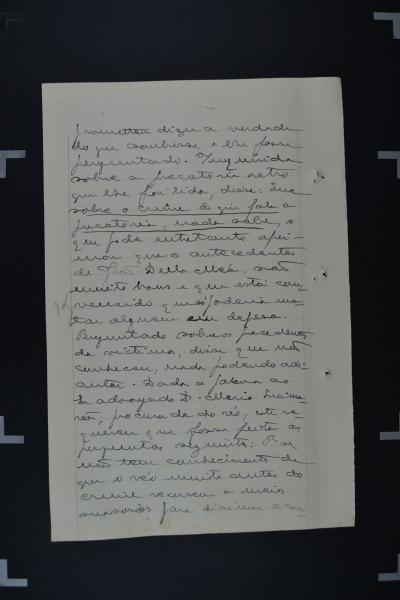 prometteu dizer a verdade
do que soubesse e lhe fosse
perguntado. Inquirida
sobre a precatoria retro
que lhe foi lida, disse: Que
sobre o crime de que fala a
precatoria, nada sabe, o
que pode entretanto afir-
mar que os antecedentes
de João Della Méa, são
muito bons e que está con-
vencido que só poderia ma-
tar alguem em defesa.
Perguntado sobre os precedentes
da victima, disse que não
conheceu, nada podendo adi-
antar. Dada a palavra ao
advogado Dr. Mario Guima-
rães, procurador do réo, este re-
quereu que fossem feitas as
perguntas seguintes: Pr. se
não tem conhecimento de
que o réo muito antes do
crime recorreu a meios
suasorios para dirimir a con-